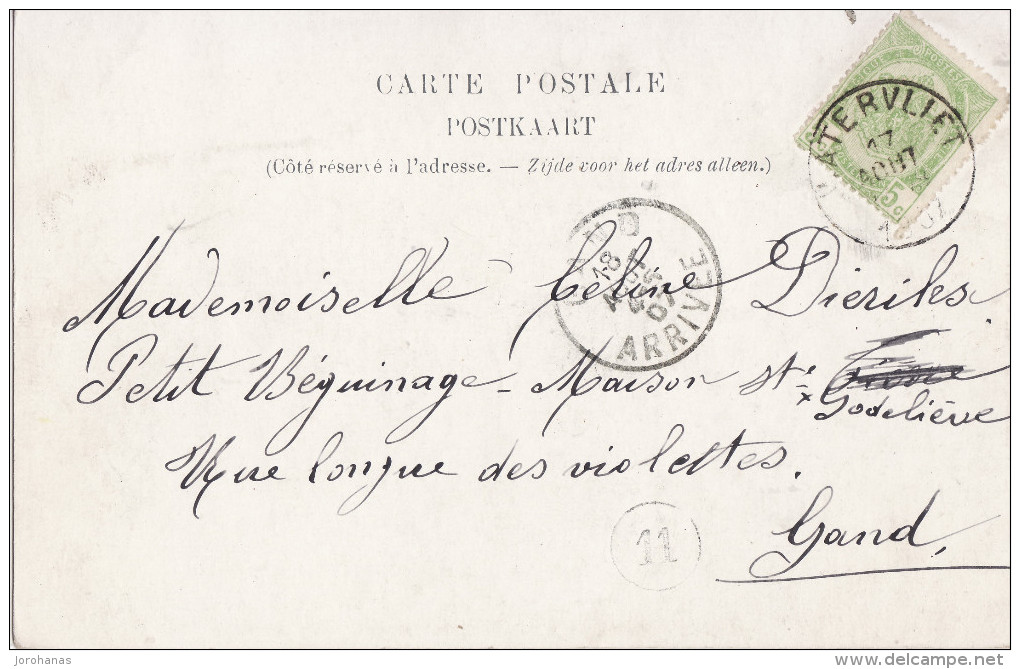 CARTE POSTALE
POSTKAART
(Côté réservé à l'adresse. — Zijde voor het adres alleen.)
ATERVLIET
17
AOUT
5c
GAND
18
07
ARRIVÉE
Mademoiselle Céline Dieriks.
Petit Béguinage - Maison Ste
Godeliève
Rue longue des violettes.
11
Gand,
jorohanas
www.delcampe.net